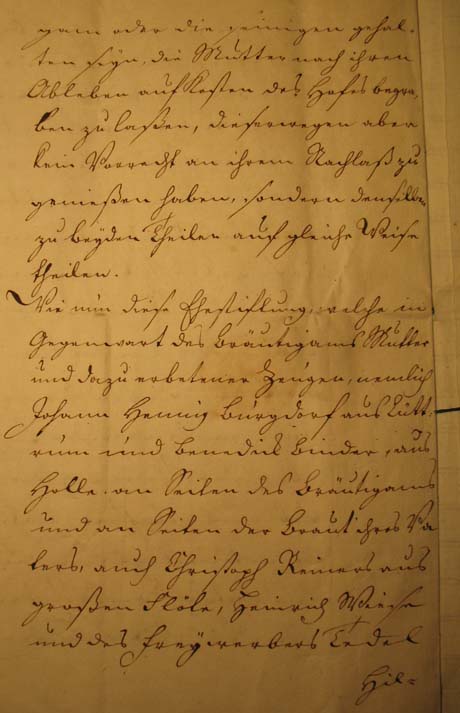 gam oder die seinigen gehal-
ten seyn, die Mutter nach ihren
Ableben auf Kosten des Hofes begra-
ben zu laßen, dieserwegen aber
kein Vorrecht an ihrem Nachlaß zu
genießen haben, sondern denselben
zu beyden Theilen auf gleiche Weise
theilen.
Wie nun diese Ehestiftung, welche in
Gegenwart des Bräutigams Mutter
und dazu erbetener Zeugen, nemlich
Johann Hennig Burgdorf aus Lutt-
rum und Benedict Binder, aus
Holle an Seiten des Bräutigams
und an Seiten der Braut ihres Va-
ters, auch Christoph Reiners aus
großen Flöte, Heinrich Wiese
und des Freywerbers Tedel
Hil-